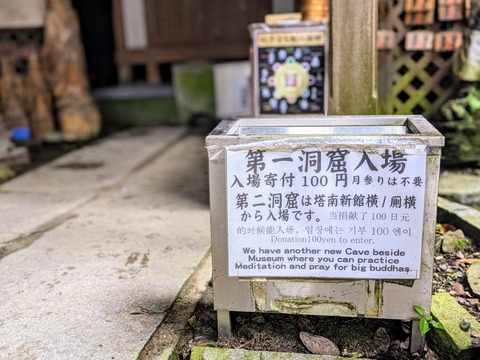 第一洞窟入場
入場寄付100円月参りは不要
第二洞窟は塔南新館横/厠横
から入場です。当捐献了100日元
的时候能入场，입장에는 기부 100 엔이
Donation100yen to enter.
We have another new Cave beside
Museum where you can practice
Meditation and pray for big buddhas